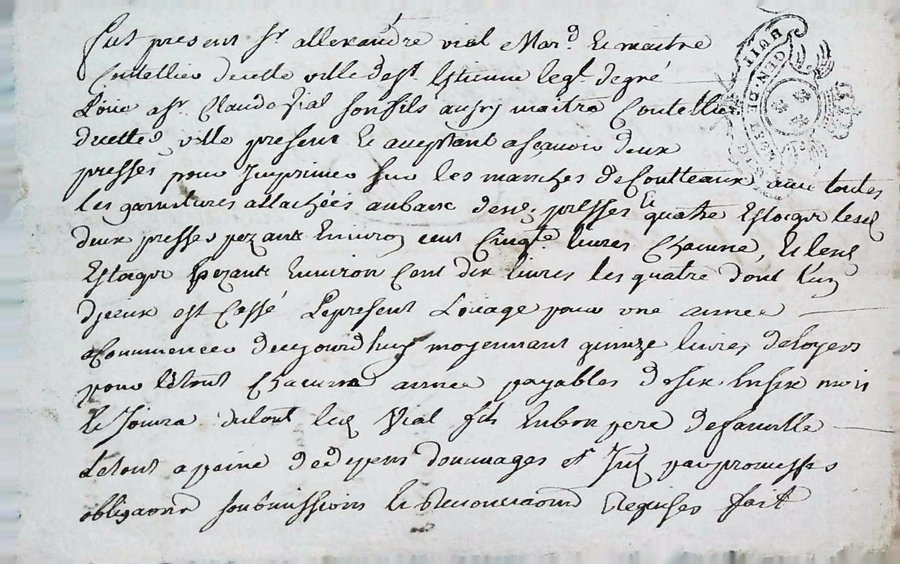 fut present Sr allexandre vial Mard et maitre
Coutellier de cette ville de st Estienne leql de gré
Loue a Sr Claude Vial son fils aussy maitre Coutellier
de cette d ville present et acceptant a sçavoir deux
presses pour Imprimer sur les manches de Coutteaux, avec toutes
les garnitures attachées au banc desd presses et quatre Estoqs lesd
deux presses pezant Environ cent Cinqte livres Chacune, et lesd
Estoqs pezant Environ Cent dix livres les quatre dont l'un
d'jceux est Cassé Le present Louage pour une année
a Commencer de ce jourd'huy moyennant quinze livres de loyers
pour le tout Chacune année payables de six En six mois
et Jouira du tout led Vial fils En bon pere de famille
Le tout a peine de depens dommages et Int par promesses
obligaõns soubmissions et Renonciaõns Requises fait
GEN DE